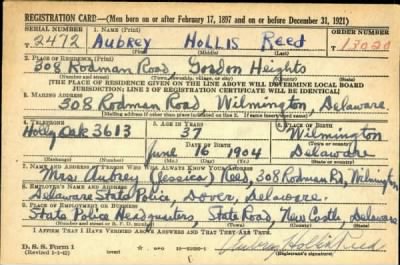 REGISTRATION CARD—(Men born on or after February 17, 1897 and on or before December 31, 1921)
SERIAL NUMBER 1. NAME (Print) ORDER NUMBER
2472 Aubrey Hollis Reed 13020
(First) (Middle) (Last)
2. PLACE OF RESIDENCE (Print)
308 Rodman Road, Gordon Heights
(Number and street) (Town, township, village, or city) (County) (State)
[THE PLACE OF RESIDENCE GIVEN ON THE LINE ABOVE WILL DETERMINE LOCAL BOARD
JURISDICTION; LINE 2 OF REGISTRATION CERTIFICATE WILL BE IDENTICAL]
3. MAILING ADDRESS
308 Rodman Road, Wilmington, Delaware
[Mailing address if other than place indicated on line 2. If same insert word same]
4. TELEPHONE 5. AGE IN YEARS 6. PLACE OF BIRTH
Holly Oak 3613 37 Wilmington
DATE OF BIRTH (Town or county)
June 16 1904 Delaware
(Exchange) (Number) (Mo.) (Day) (Yr.) (State or country)
7. NAME AND ADDRESS OF PERSON WHO WILL ALWAYS KNOW YOUR ADDRESS
Mrs. Aubrey (Jessica) Reed, 308 Rodman Rd, Wilmington
8. EMPLOYER'S NAME AND ADDRESS
Delaware State Police, Dover, Delaware.
9. PLACE OF EMPLOYMENT OR BUSINESS
State Police Headquarters, State Road, New Castle, Delaware
(Number and street or R. F. D. number) (Town) (County) (State)
I AFFIRM THAT I HAVE VERIFIED ABOVE ANSWERS AND THAT THEY ARE TRUE.
D. S. S. Form 1
(Revised 1-1-42) Aubrey Hollis Reed
(Registrant's signature)